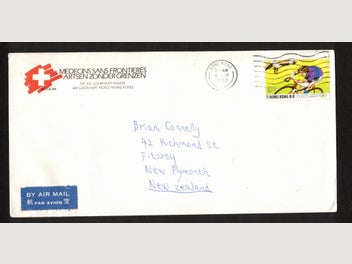 MEDECINS SANS FRONTIERES
ARTSEN ZONDER GRENZEN
LOCKHART HOUSE
LOCKHART ROAD, HONG KONG
HONG KONG
Brian Connelly
42 Richmond St
Fitzroy
New Plymouth
New Zealand
BY AIR MAIL
航 PAR AVION 空